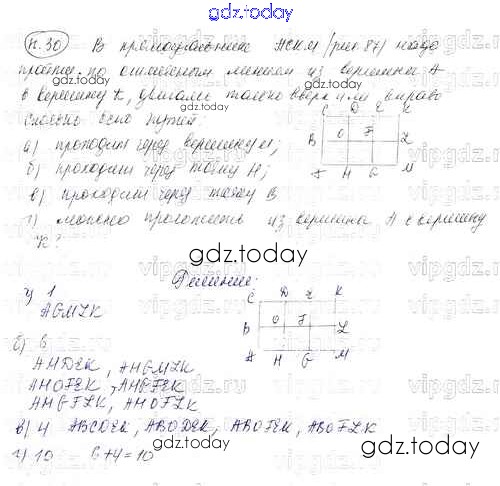 gdz.today
К. 30 В прямоугольнике АСКМ (рис 87) надо
пройти по отмеченным линиям из вершины А
в вершину К, двигаясь только вверх или вправо
сколько есть путей:
а) проходит через вершину М;
б) проходит через точку Н;
в) проходит через точку В
г) можно проложить из вершины А в вершину
К?
C D E K
B O F L
A H G M
gdz.today
gdz.today
Решение:
1
AGMLK
C D E K
B O F L
A H G M
б) 6
AHDEK, AHGMLK
AHOFEK, AHGFEK
AHGFLK, AHOFLK
в) 4 ABCDEK, ABODEK, ABOFEK, ABOFLK
г) 10 6+4=10
gdz.today
gdz.today
vipgdz.ru